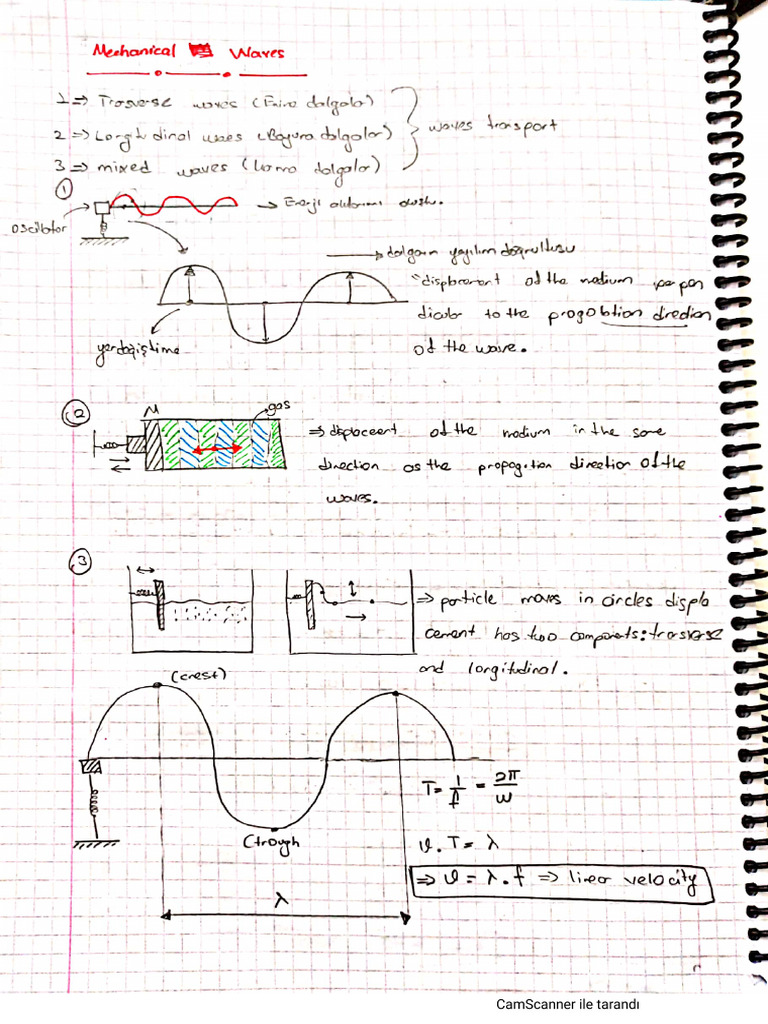 Mechanical Waves
1 ⇒ Trasverse waves (Enine dalgalar)
2 ⇒ Longitudinal waves (Boyuna dalgalar)
3 ⇒ mixed waves (karma dalgalar)
waves transport
①
oscillator
→ Enerji aktarımı
→ dalganın yayılım doğrultusu
"displacement of the medium perpen
dicular to the propagation direction
of the wave.
yerdeğiştirme
②
M
gas
⇒ displacement of the medium in the same
direction as the propagation direction of the
waves.
③
⇒ particle moves in circles displa
cement has two components: transverse
and longitudinal.
(crest)
T = 1/f = 2π/w
(trough
ϑ . T = λ
⇒ ϑ = λ . f ⇒ linear velocity
λ
CamScanner ile tarandı